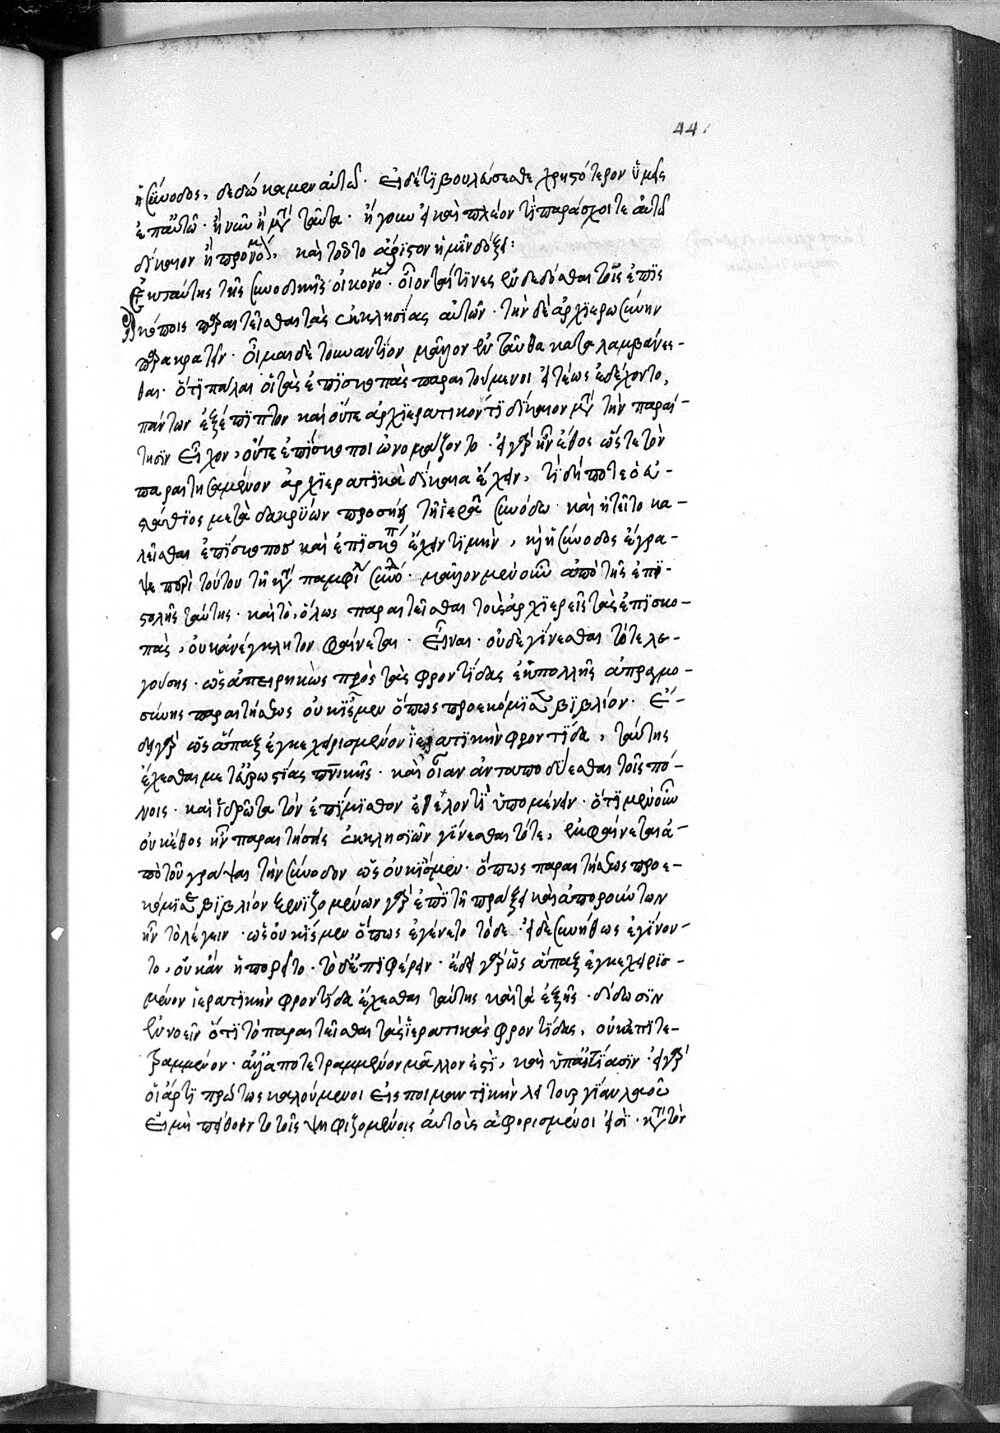 44
ἡ σύνοδος, δεδώκαμεν αὐτῷ· εἰ δέ τι βουλεύσεσθε χρηστότερον ὑμεῖς
ἐπ' αὐτῷ· ἢ νῦν ἢ μετὰ ταῦτα· ἤγουν εἰ καὶ πλέον τι παράσχοιτε αὐτῷ
δίκαιον ἢ προνόμιον, καὶ τοῦτο ἄριστον ἡμῖν δόξει:
Ἐκ ταύτης τῆς συνοδικῆς οἰκονομίας οἴονταί τινες ἐνδεδόσθαι τοῖς ἐπι
σκόποις παραιτεῖσθαι τὰς ἐκκλησίας αὐτῶν· τὴν δὲ ἀρχιερωσύνην
παρακρατεῖν· οἶμαι δὲ τοὐναντίον μᾶλλον ἐνταῦθα καταλαμβάνεσ-
θαι· ὅτι πάλαι οἱ τὰς ἐπισκοπὰς παραιτούμενοι εἰ τέως ἐδέχοντο,
πάντων ἐξέπιπτον καὶ οὔτε ἀρχιερατικόν τι δίκαιον μετὰ τὴν παραί-
τησιν εἶχον, οὔτε ἐπίσκοποι ὠνομάζοντο· εἰ γὰρ ἦν ἔθος ὥστε τὸν
παραιτησάμενον ἀρχιερατικὰ δίκαια ἔχειν, τί δήποτε ὁ εὐ-
στάθιος μετὰ δακρύων προσῄει τῇ ἱερᾷ συνόδῳ· καὶ ᾐτεῖτο κα-
λεῖσθαι ἐπίσκοπος καὶ ἐπισκόπου ἔχειν τιμὴν, καὶ ἡ σύνοδος ἔγρα-
ψε περὶ τούτου τῇ κατὰ παμφυλίαν συνόδῳ· μᾶλλον μὲν οὖν ἀπὸ τῆς ἐπι-
στολῆς ταύτης· καὶ τὸ, ὅλως παραιτεῖσθαι τοὺς ἀρχιερεῖς τὰς ἐπισκο-
πὰς, οὐκ ἀνέγκλητον φαίνεται· εἶναι· οὐδὲ γίνεσθαι τότε λε-
γούσης· ὡς ἀπειρηκὼς πρὸς τὰς φροντίδας ἐκ πολλῆς ἀπραγμο-
σύνης παραιτήσεως οὐκ ἴσμεν ὅπως προεκόμισε βιβλίον· ἔ-
δει γὰρ ὡς ἅπαξ ἐγκεχειρισμένον ἱερατικὴν φροντίδα, ταύτης
ἔχεσθαι μετ' εὐρωστίας πνευματικῆς· καὶ οἷον ἀνταποδύεσθαι τοῖς πό-
νοις· καὶ ἱδρῶτα τὸν ἐπίμισθον ἐθελοντὶ ὑπομένειν· ὅτι μὲν οὖν
οὐκ ἔθος ἦν παραιτήσεις ἐκκλησιῶν γίνεσθαι τότε, ἐκφαίνεται ἀ-
πὸ τοῦ γράψαι τὴν σύνοδον ὡς οὐκ ἴσμεν· ὅπως παραιτήσεως προε-
κόμισε βιβλίον ξενιζομένων γὰρ ἐπὶ τῇ πράξει καὶ ἀπορούντων
ἦν τὸ λέγειν· ὡς οὐκ ἴσμεν ὅπως ἐγένετο τόδε· εἰ δὲ συνήθως ἐγίνον-
το, οὐκ ἂν ἠπορεῖτο· τὸ δὲ ἐπιφέρειν· ἔδει γὰρ ὡς ἅπαξ ἐγκεχειρισ-
μένον ἱερατικὴν φροντίδα ἔχεσθαι ταύτης καὶ τὰ ἑξῆς· δίδωσιν
ἐννοεῖν ὅτι τὸ παραιτεῖσθαι τὰς ἱερατικὰς φροντίδας, οὐκ ἐπιτε-
τραμμένον· ἀλλ' ἀποτετραμμένον μᾶλλον ἐστὶ, καὶ ὑπαίτιασιν· εἰ γὰρ
οἱ ἄρτι πρώτως καλούμενοι εἰς ποιμαντικὴν λειτουργίαν λαοῦ
εἰ μὴ πείθοιντο τοῖς ψηφιζομένοις αὐτοὺς ἀφορισμένοι εἰσὶ· κατὰ τὸν